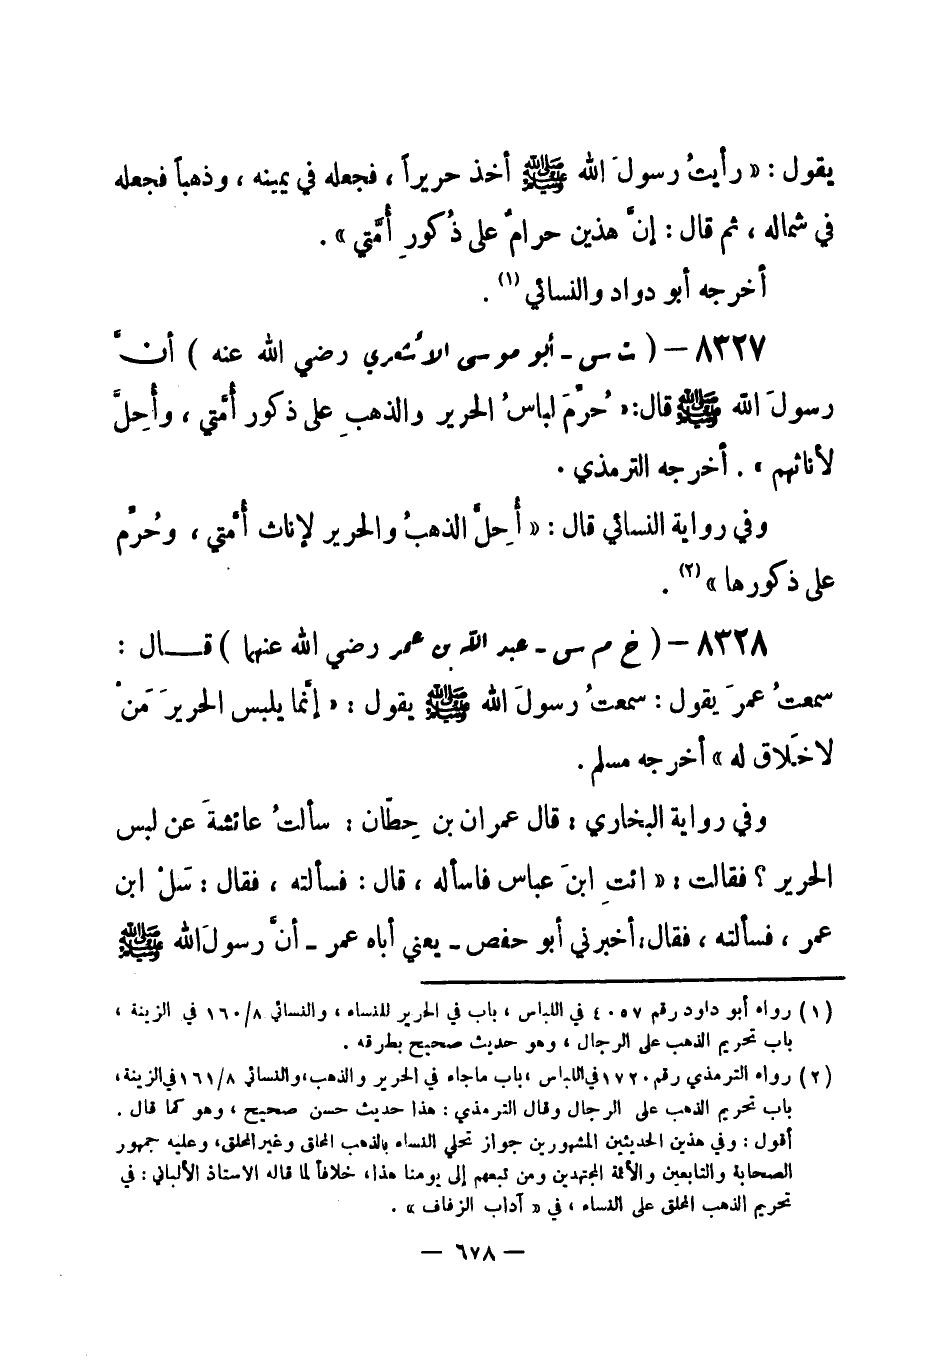 يقول : « رأيتُ رسولَ الله ﷺ أخذ حريراً ، فجعله في يمينه ، وذهباً فجعله
في شماله ، ثم قال : إنَّ هذين حرامٌ على ذُكورِ أُمَّتي » .
أخرجه أبو دواد والنسائي (١) .
٨٣٢٧ – ( ت س - أبو موسى الأشعري رضي الله عنه ) أنَّ
رسولَ الله ﷺ قال: « حُرِّمَ لباسُ الحرير والذهبِ على ذكور أُمَّتي ، وأُحِلَّ
لأناثهم » . أخرجه الترمذي .
وفي رواية النسائي قال : « أُحِلَّ الذهبُ والحرير لإناث أُمَّتي ، وحُرِّم
على ذكورها » (٢) .
٨٣٢٨ – ( خ م س - عبد الله بن عمر رضي الله عنهما ) قـــال :
سمعتُ عمرَ يقول : سمعتُ رسولَ الله ﷺ يقول : « إنَّما يلبس الحريرَ مَنْ
لا خَلاق له » أخرجه مسلم .
وفي رواية البخاري : قال عمران بن حِطَّان : سألتُ عائشةَ عن لبس
الحرير ؟ فقالت : « ائتِ ابنَ عباس فاسأله ، قال : فسألته ، فقال : سَلْ ابن
عمر ، فسألته ، فقال: أخبرني أبو حفص - يعني أباه عمر - أنَّ رسولَ الله ﷺ
(١) رواه أبو داود رقم ٤٠٥٧ في اللباس ، باب في الحرير للنساء ، والنسائي ١٦٠/٨ في الزينة ،
باب تحريم الذهب على الرجال ، وهو حديث صحيح بطرقه .
(٢) رواه الترمذي رقم ١٧٢٠ في اللباس ، باب ماجاء في الحرير والذهب، والنسائي ١٦١/٨ في الزينة،
باب تحريم الذهب على الرجال وقال الترمذي : هذا حديث حسن صحيح ، وهو كما قال .
أقول : وفي هذين الحديثين المشهورين جواز تحلي النساء بالذهب المحلق وغير المحلق، وعليه جمهور
الصحابة والتابعين والأئمة المجتهدين ومن تبعهم إلى يومنا هذا، خلافاً لما قاله الاستاذ الألباني : في
تحريم الذهب المحلق على النساء ، في « آداب الزفاف » .
— ٦٧٨ —